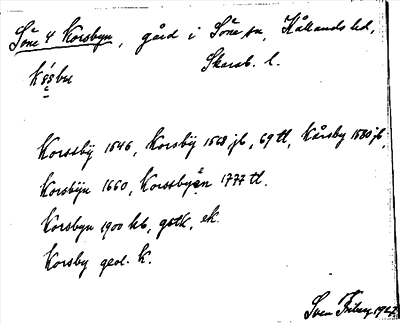 Söne 4 Korsbyn, gård i Söne sn, Kållands hd,
Skarab. l.
Korssbÿ 1546, Korsbÿ 1568 jb, 69 tl, Kårsby 1580 jb,
Korsbÿn 1660, Korssbyån 1777 tl.
Korsbyn 1900 kb, gstk, ek.
Korsby geol. k.
Sven 1927